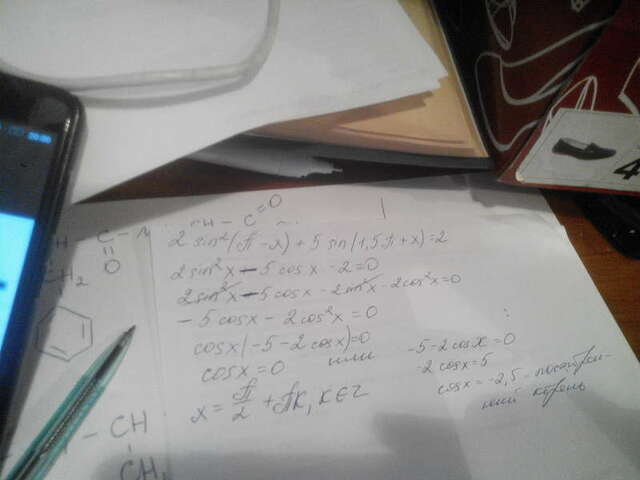 CH - C = O
2 sin²(π - x) + 5 sin(1,5π + x) = 2
2 sin²x - 5 cos x - 2 = 0
2 sin²x - 5 cos x - 2 sin²x - 2 cos²x = 0
- 5 cos x - 2 cos²x = 0
cos x (-5 - 2 cos x) = 0
cos x = 0 или -5 - 2 cos x = 0
-2 cos x = 5
cos x = -2,5 - посторон-
ний корень
x = π/2 + πk, k ∈ Z
H - C - N
O
H₂
- CH
CH
4